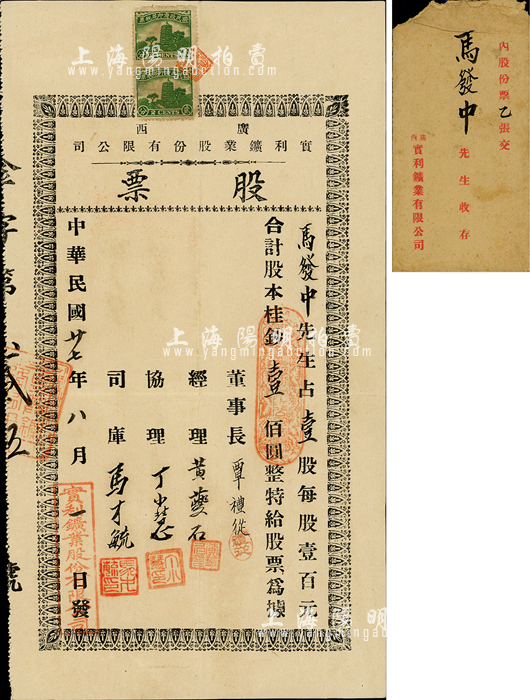 廣西
實利鑛業股份有限公司
股票
馬發中先生占壹股每股壹百元
合計股本桂鈔壹佰圓整特給股票爲據
董事長 覃禮從
經理 黃夔石
協理 丁少慧
司庫 馬才毓
中華民國廿七年八月一日發
實利鑛業股份有限公司
2 CENTS 2
內股份票乙張交
馬發中先生收存
廣西實利鑛業有限公司
上海陽明拍賣
www.yangmingauction.com
上海陽明拍賣
www.yangmingauction.com
上海陽明
www.yangmingauction